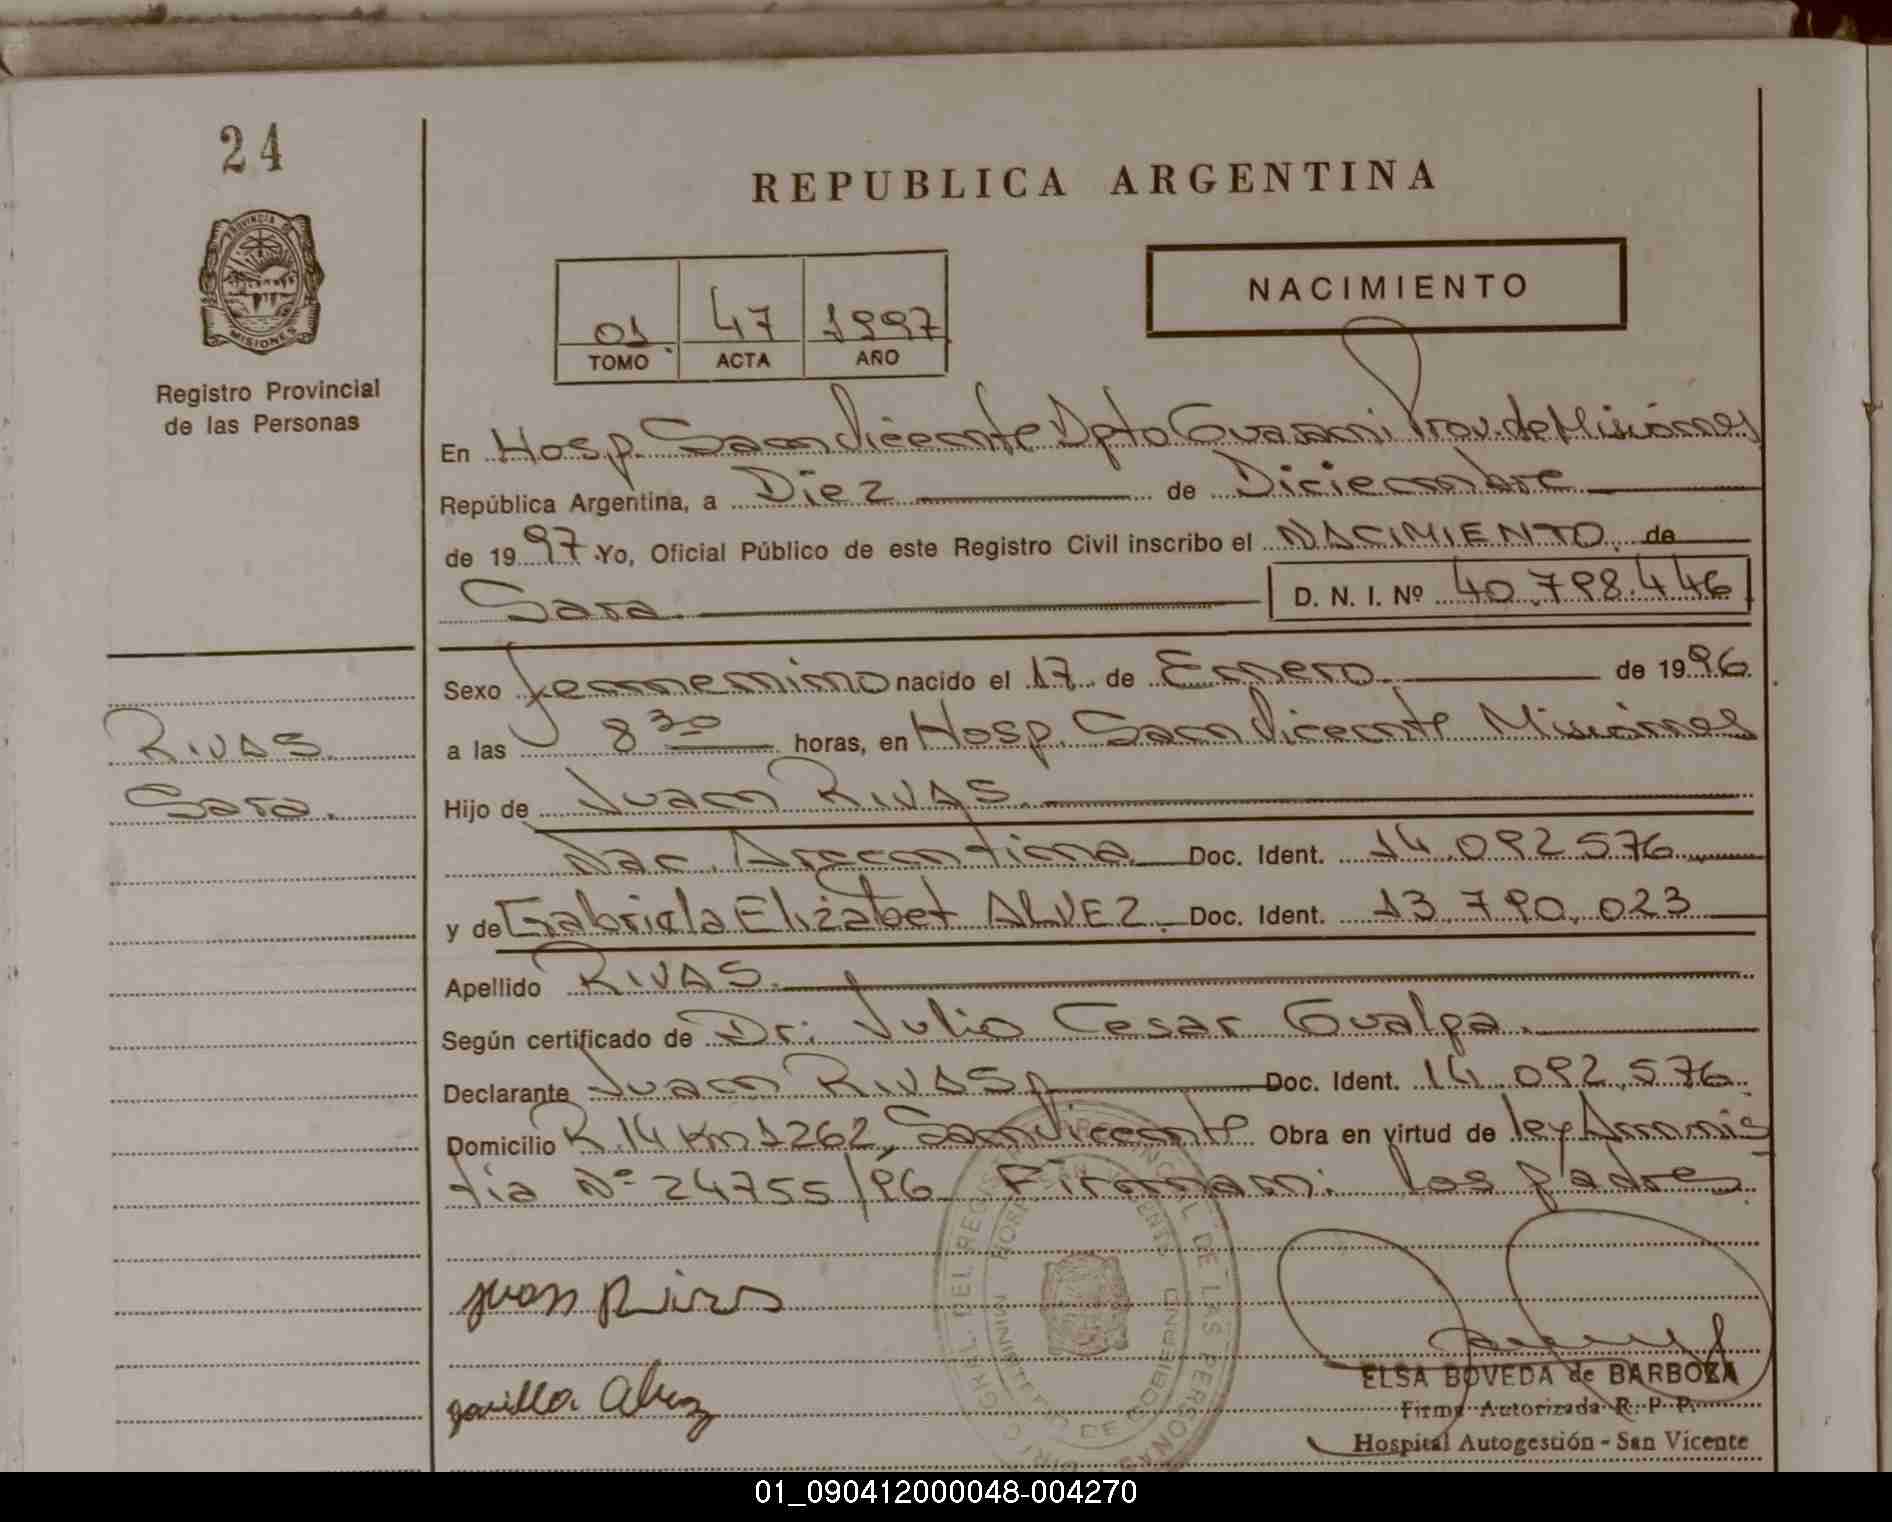 24
REPUBLICA ARGENTINA
PROVINCIA DE
MISIONES
Registro Provincial
de las Personas
NACIMIENTO
01 47 1997
TOMO ACTA AÑO
En Hosp. San Vicente Dpto Guarani Prov. de Misiónes
República Argentina, a Diez de Diciembre
de 1997 Yo, Oficial Público de este Registro Civil inscribo el NACIMIENTO. de
Sara. D. N. I. Nº 40.798.446
Sexo femnenino nacido el 17 de Enero de 1996.
a las 8 30 horas, en Hosp. San Vicente Misiónes
RIVAS
Sara.
Hijo de Juan RIVAS.
Nac. Argentina Doc. Ident. 14.092.576
y de Gabriela Elizabet ALVEZ. Doc. Ident. 13.790.023
Apellido RIVAS.
Según certificado de Dr: Julio Cesar Gualpa.
Declarante Juan RIVAS Doc. Ident. 14.092.576
Domicilio R.14 Km 1262, San Vicente Obra en virtud de ley Amnis
tia Nº 24755/96 Firman: los padres
Juan Rivas
Alvez
ELSA BOVEDA de BARBOZA
Firma Autorizada R. P. P.
Hospital Autogestión - San Vicente
DEL REGISTRO PROVINCIAL DE LAS PERSONAS
SAN VICENTE
MINISTERIO DE GOBIERNO
01_090412000048-004270